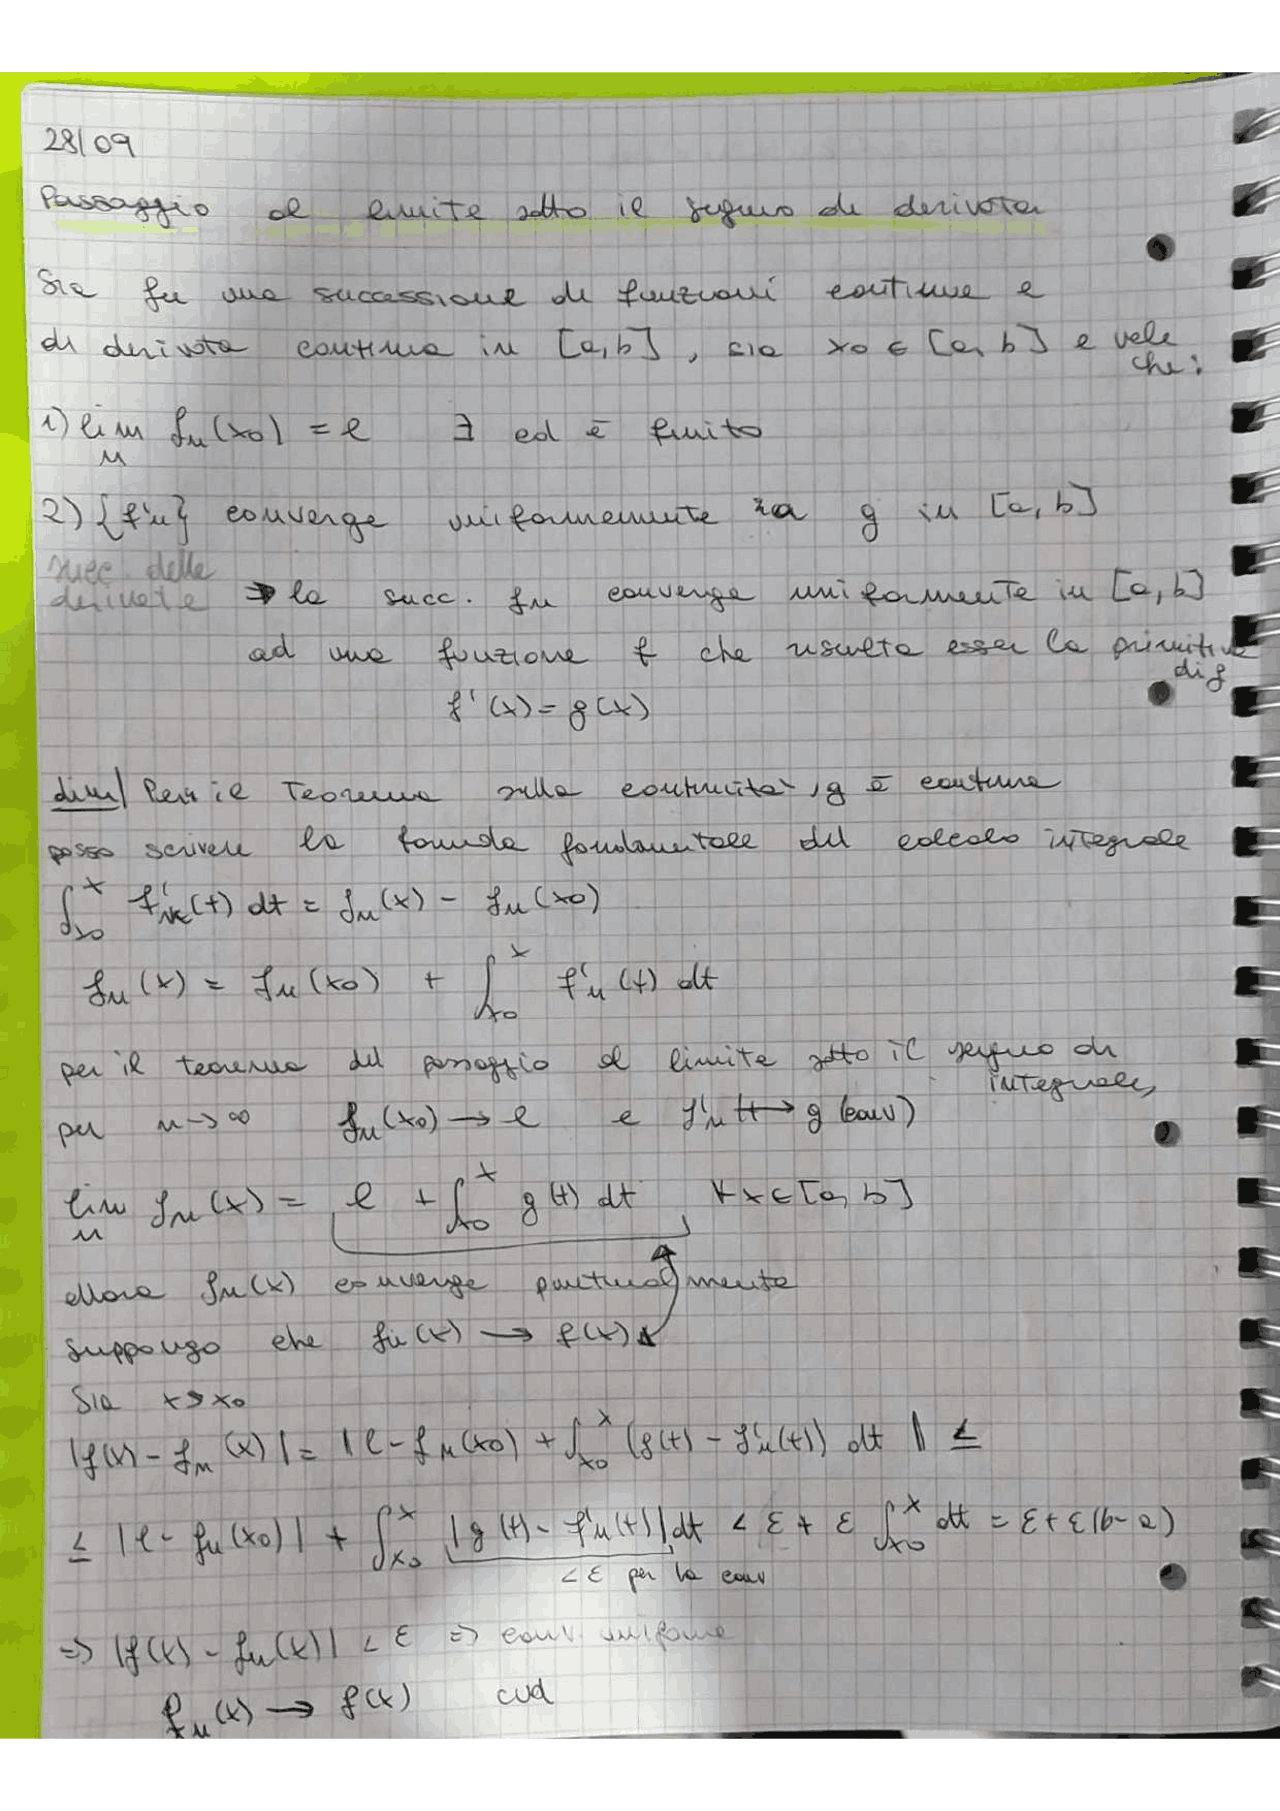 28/09
Passaggio al limite sotto il segno di derivata
Sia fn una successione di funzioni continue e
di derivata continua in [a,b], sia x0 ∈ [a, b] e vale
che:
1) lim fn(x0) = l ∃ ed è finito
n
2) {f'n} converge uniformemente a g in [a, b]
succ. delle
derivate ⇒ la succ. fn converge uniformente in [a,b]
ad una funzione f che risulta esser la primitiva
di g
f'(x) = g(x)
dim/ Per il Teorema sulla continuità, g è continua
posso scrivere la formula fondamentale del calcolo integrale
∫x0^x f'n(t) dt = fn(x) - fn(x0)
fn(x) = fn(x0) + ∫x0^x f'n(t) dt
per il teorema del passaggio al limite sotto il segno di
integrale,
per n→∞ fn(x0) → l e f'n → g (conv)
lim fn(x) = l + ∫x0^x g(t) dt ∀x∈[a, b]
n
allora fn(x) converge puntualmente
suppongo che fn(x) → f(x)
Sia x>x0
|f(x) - fn(x)| = |l - fn(x0) + ∫x0^x (g(t) - f'n(t)) dt| ≤
≤ |l - fn(x0)| + ∫x0^x |g(t) - f'n(t)| dt < ε + ε ∫x0^x dt = ε + ε(b-a)
< ε per la conv
⇒ |f(x) - fn(x)| < ε ⇒ conv. uniforme
fn(x) → f(x) cvd